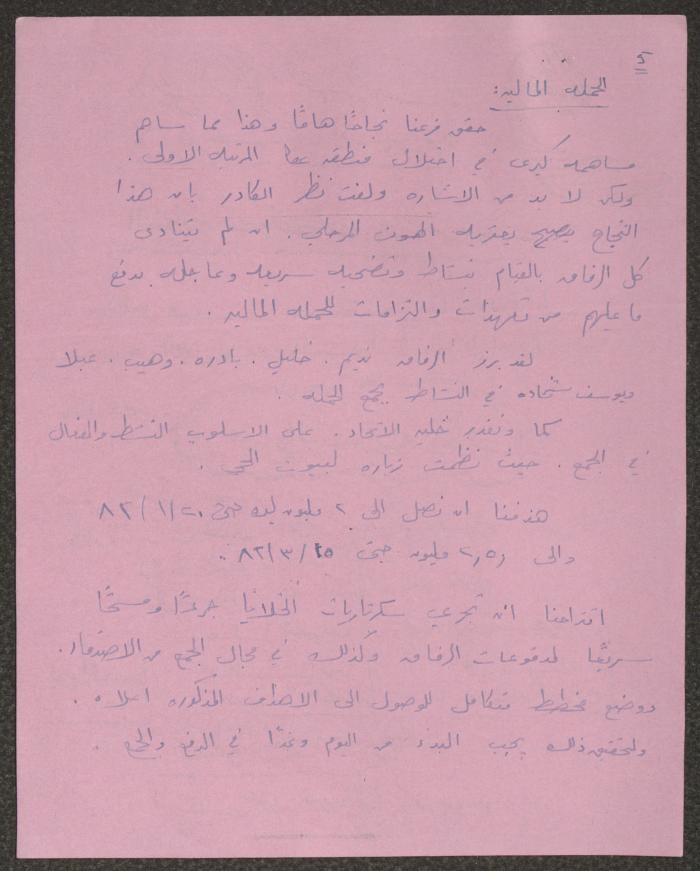 ٥
الحمله الماليه:
حقق فرعنا نجاحًا هامًا وهذا مما ساهم
مساهمه كبرى في احتلال منطقه عكا المرتبه الاولى.
ولكن لا بد من الاشاره ولفت نظر الكادر بان هذا
النجاح يصبح بعتريه الهون المرحلي. ان لم يتنادى
كل الرفاق بالقيام بنشاط وتضحيه سريعه وعاجله بدفع
ما عليهم من تعهدات والتزامات للحمله الماليه.
لقد برز الرفاق نديم. خليل. بادره. وهيب. عبلا
ويوسف شحاده في النشاط بجمع الحمله.
كما ونقدر خليه الاتحاد. على الاسلوب النشط والفعال
في الجمع. حيث نظمت زياره لبيوت الحي.
هدفنا ان نصل الى ٢ مليون ليره حتى ٨٢/١/٢٠
والى ٢,٥ مليون حتى ٨٢/٣/٢٥.
اقتراحنا ان تجري سكرتاريات الخلايا جردًا ومسحًا
سريعًا لمدفوعات الرفاق وكذلك في مجال الجمع من الاصدقاء.
ووضع مخطط متكامل للوصول الى الاهداف المذكوره اعلاه.
ولتحقيق ذلك يجب البدء من اليوم وغدًا في الدفع والجمع.